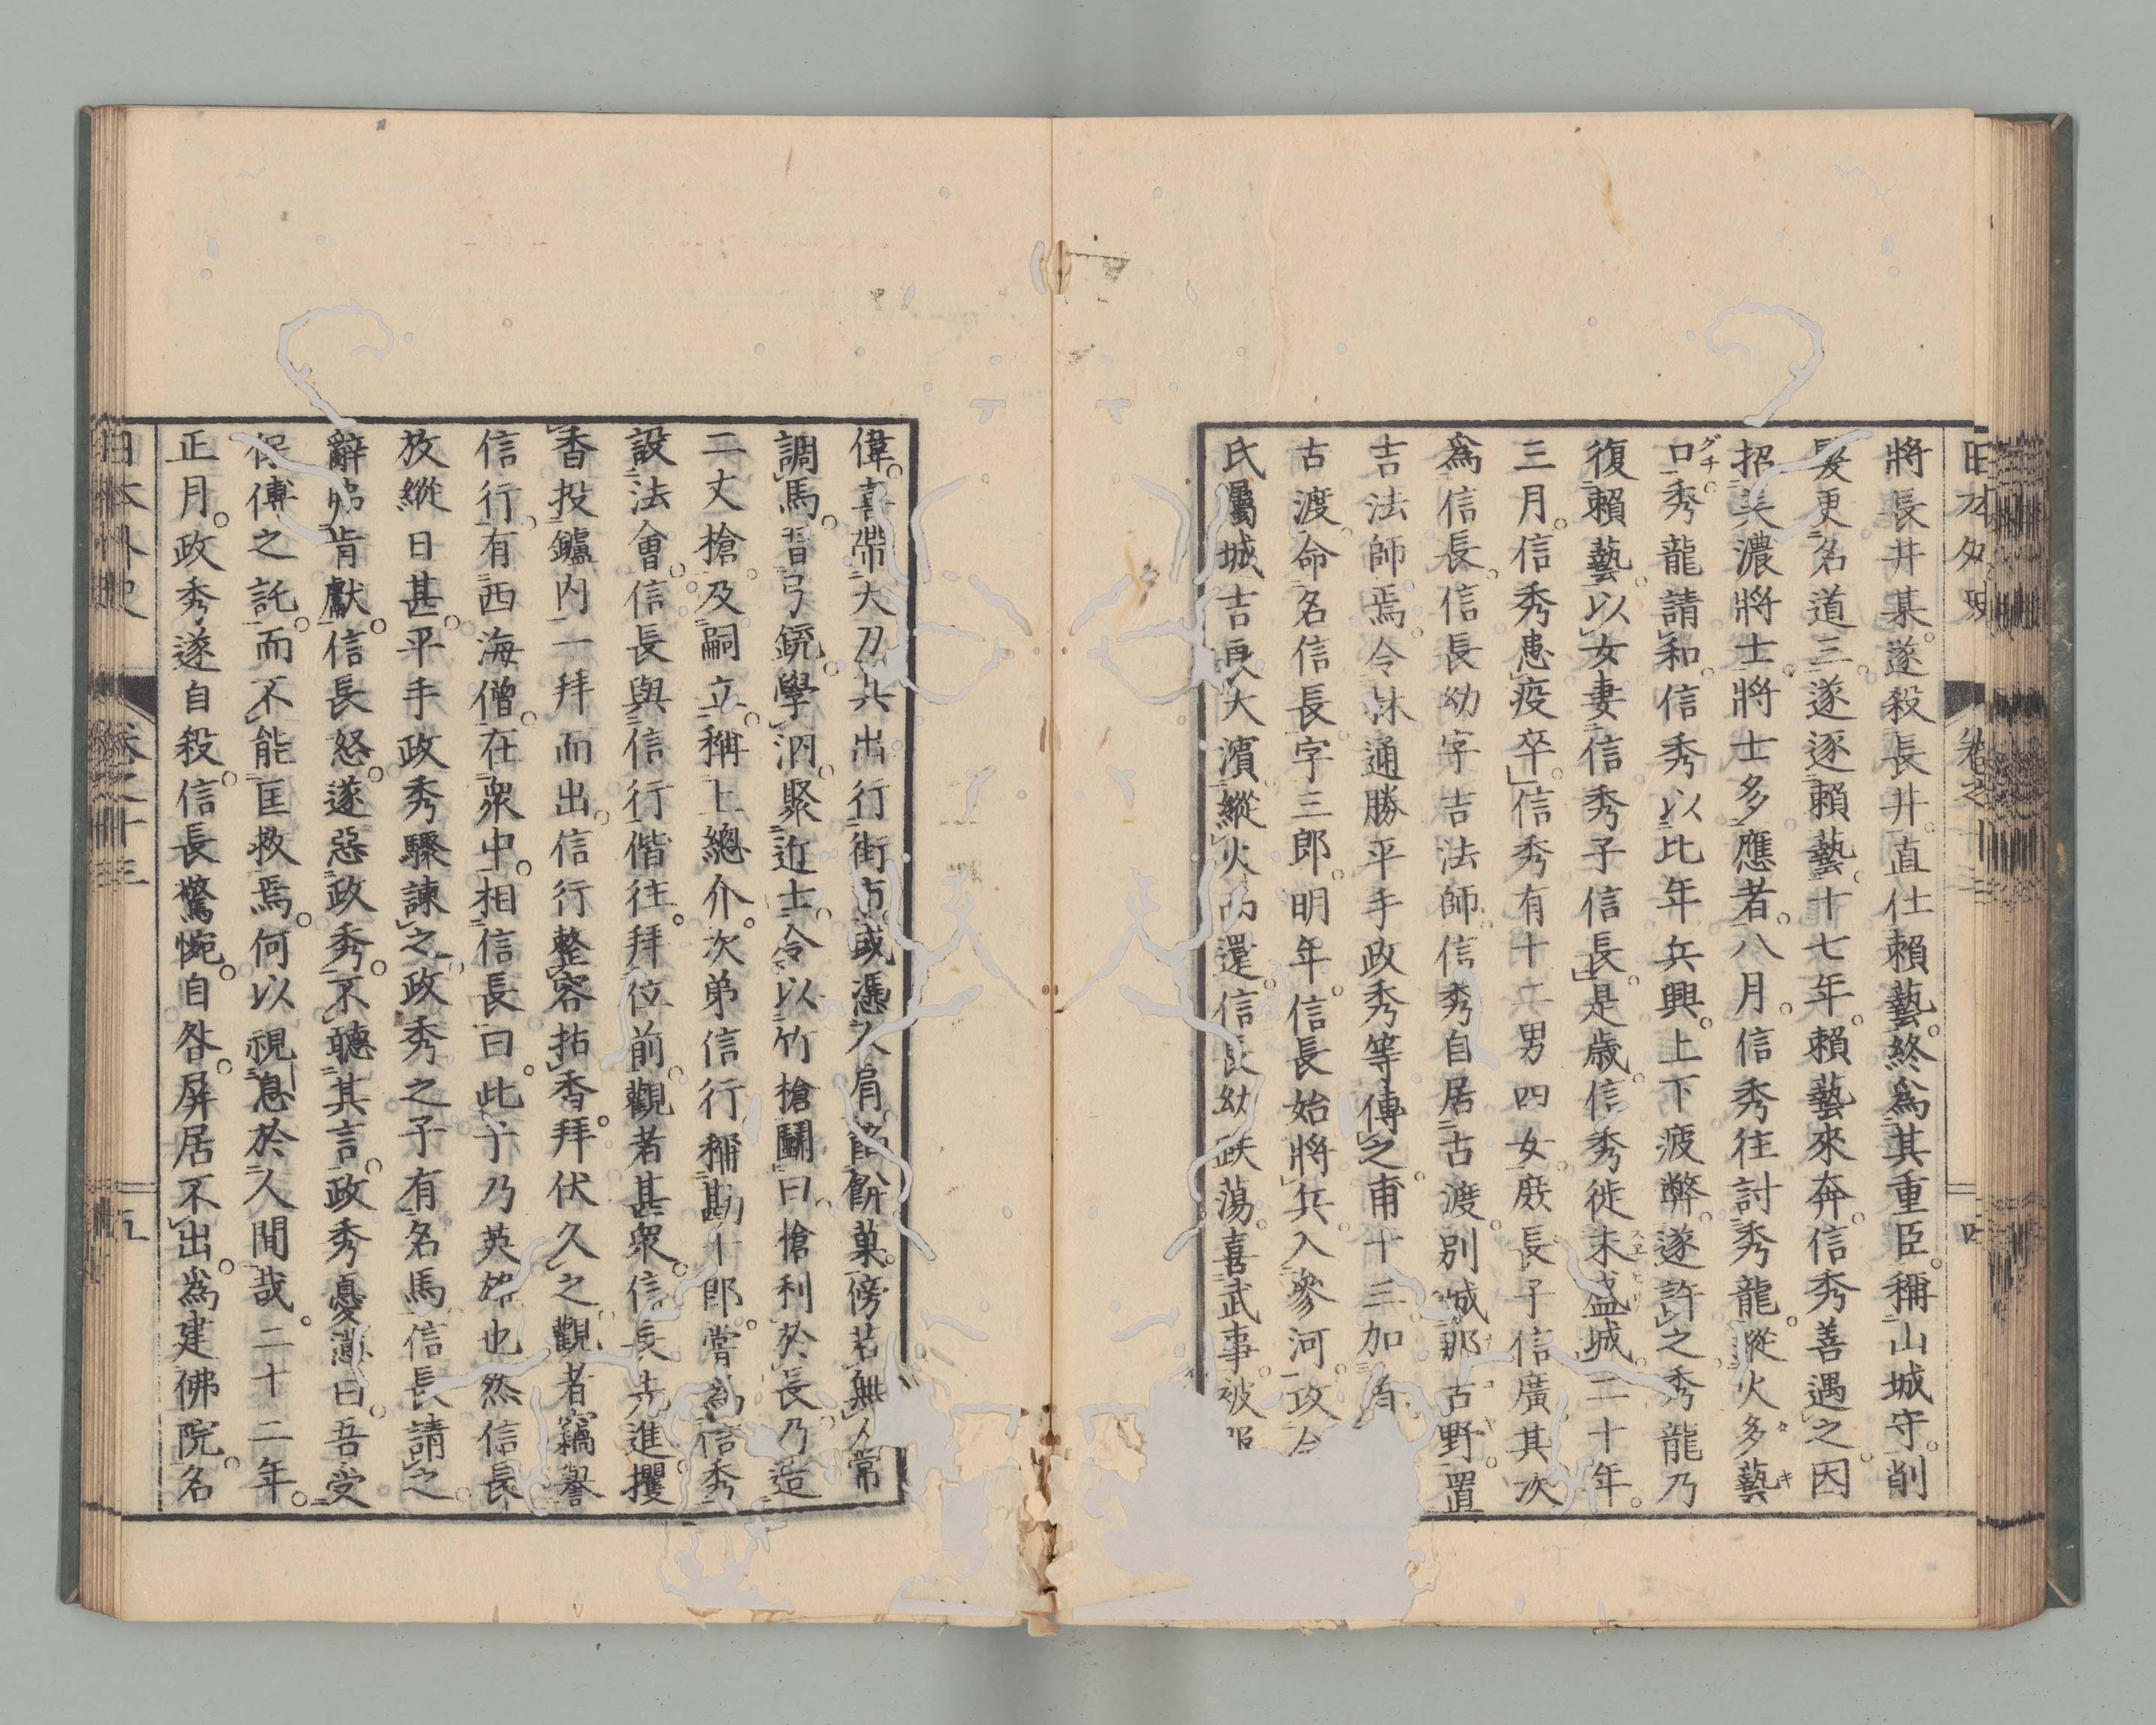 日本外史 卷之十三 四
將長井某。遂殺長井。直仕賴藝。終爲其重臣。稱山城守。削
髮更名道三。遂逐賴藝。十七年。賴藝來奔。信秀善遇之。因
招美濃將士。將士多應者。八月。信秀往討秀龍。縱火多藝
口。秀龍請和。信秀以比年兵興。上下疲弊。遂許之。秀龍乃
復賴藝。以女妻信秀子信長。是歲。信秀徙末盛城。二十年。
三月。信秀患疫卒。信秀有十二男四女。庶長子信廣。其次
爲信長。信長幼字吉法師。信秀自居古渡。別城那古野。置
吉法師焉。令林通勝平手政秀等傅之。甫十三加首
古渡。命名信長。字三郎。明年。信長始將兵。入參河。攻
氏屬城吉良大濱。縱火而還。信長幼跌蕩。喜武事。被服
偉。喜帶大刀。其出行街市。或憑人肩。餡餅菓。傍若無人。常
調馬。習弓銃。學泅。聚近士。令以竹槍鬪。曰。槍利於長。乃造
二丈槍。及嗣立。稱上總介。次弟信行稱勘十郎。嘗爲信秀
設法會。信長與信行偕往。拜位前。觀者甚衆。信長先進。攫
香投鑪内。一拜而出。信行整容拈香。拜伏久之。觀者竊譽
信行。有西海僧。在衆中。相信長曰。此子乃英雄也。然信長
放縱日甚。平手政秀驟諫之。政秀之子有名馬。信長請之。
辭弗肯獻。信長怒。遂惡政秀。不聽其言。政秀憂懣曰。吾受
保傅之託。而不能匡救焉。何以視息於人間哉。二十二年。
正月。政秀遂自殺。信長驚惋。自咎。屏居不出。爲建佛院。名
日本外史 卷之十三 五